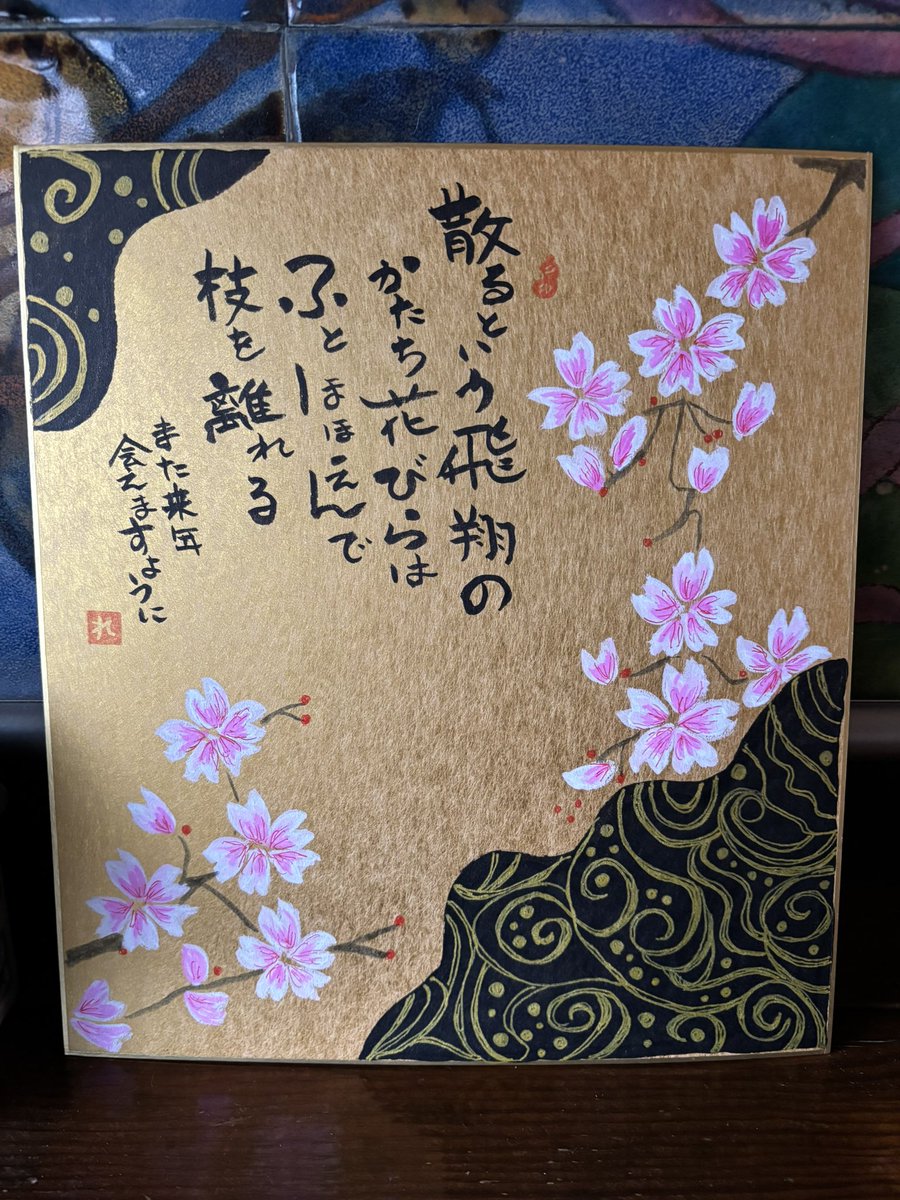 散るという飛翔の
かたち花びらは
ふとほほえんで
枝を離れる
また来年
会えますように
れ